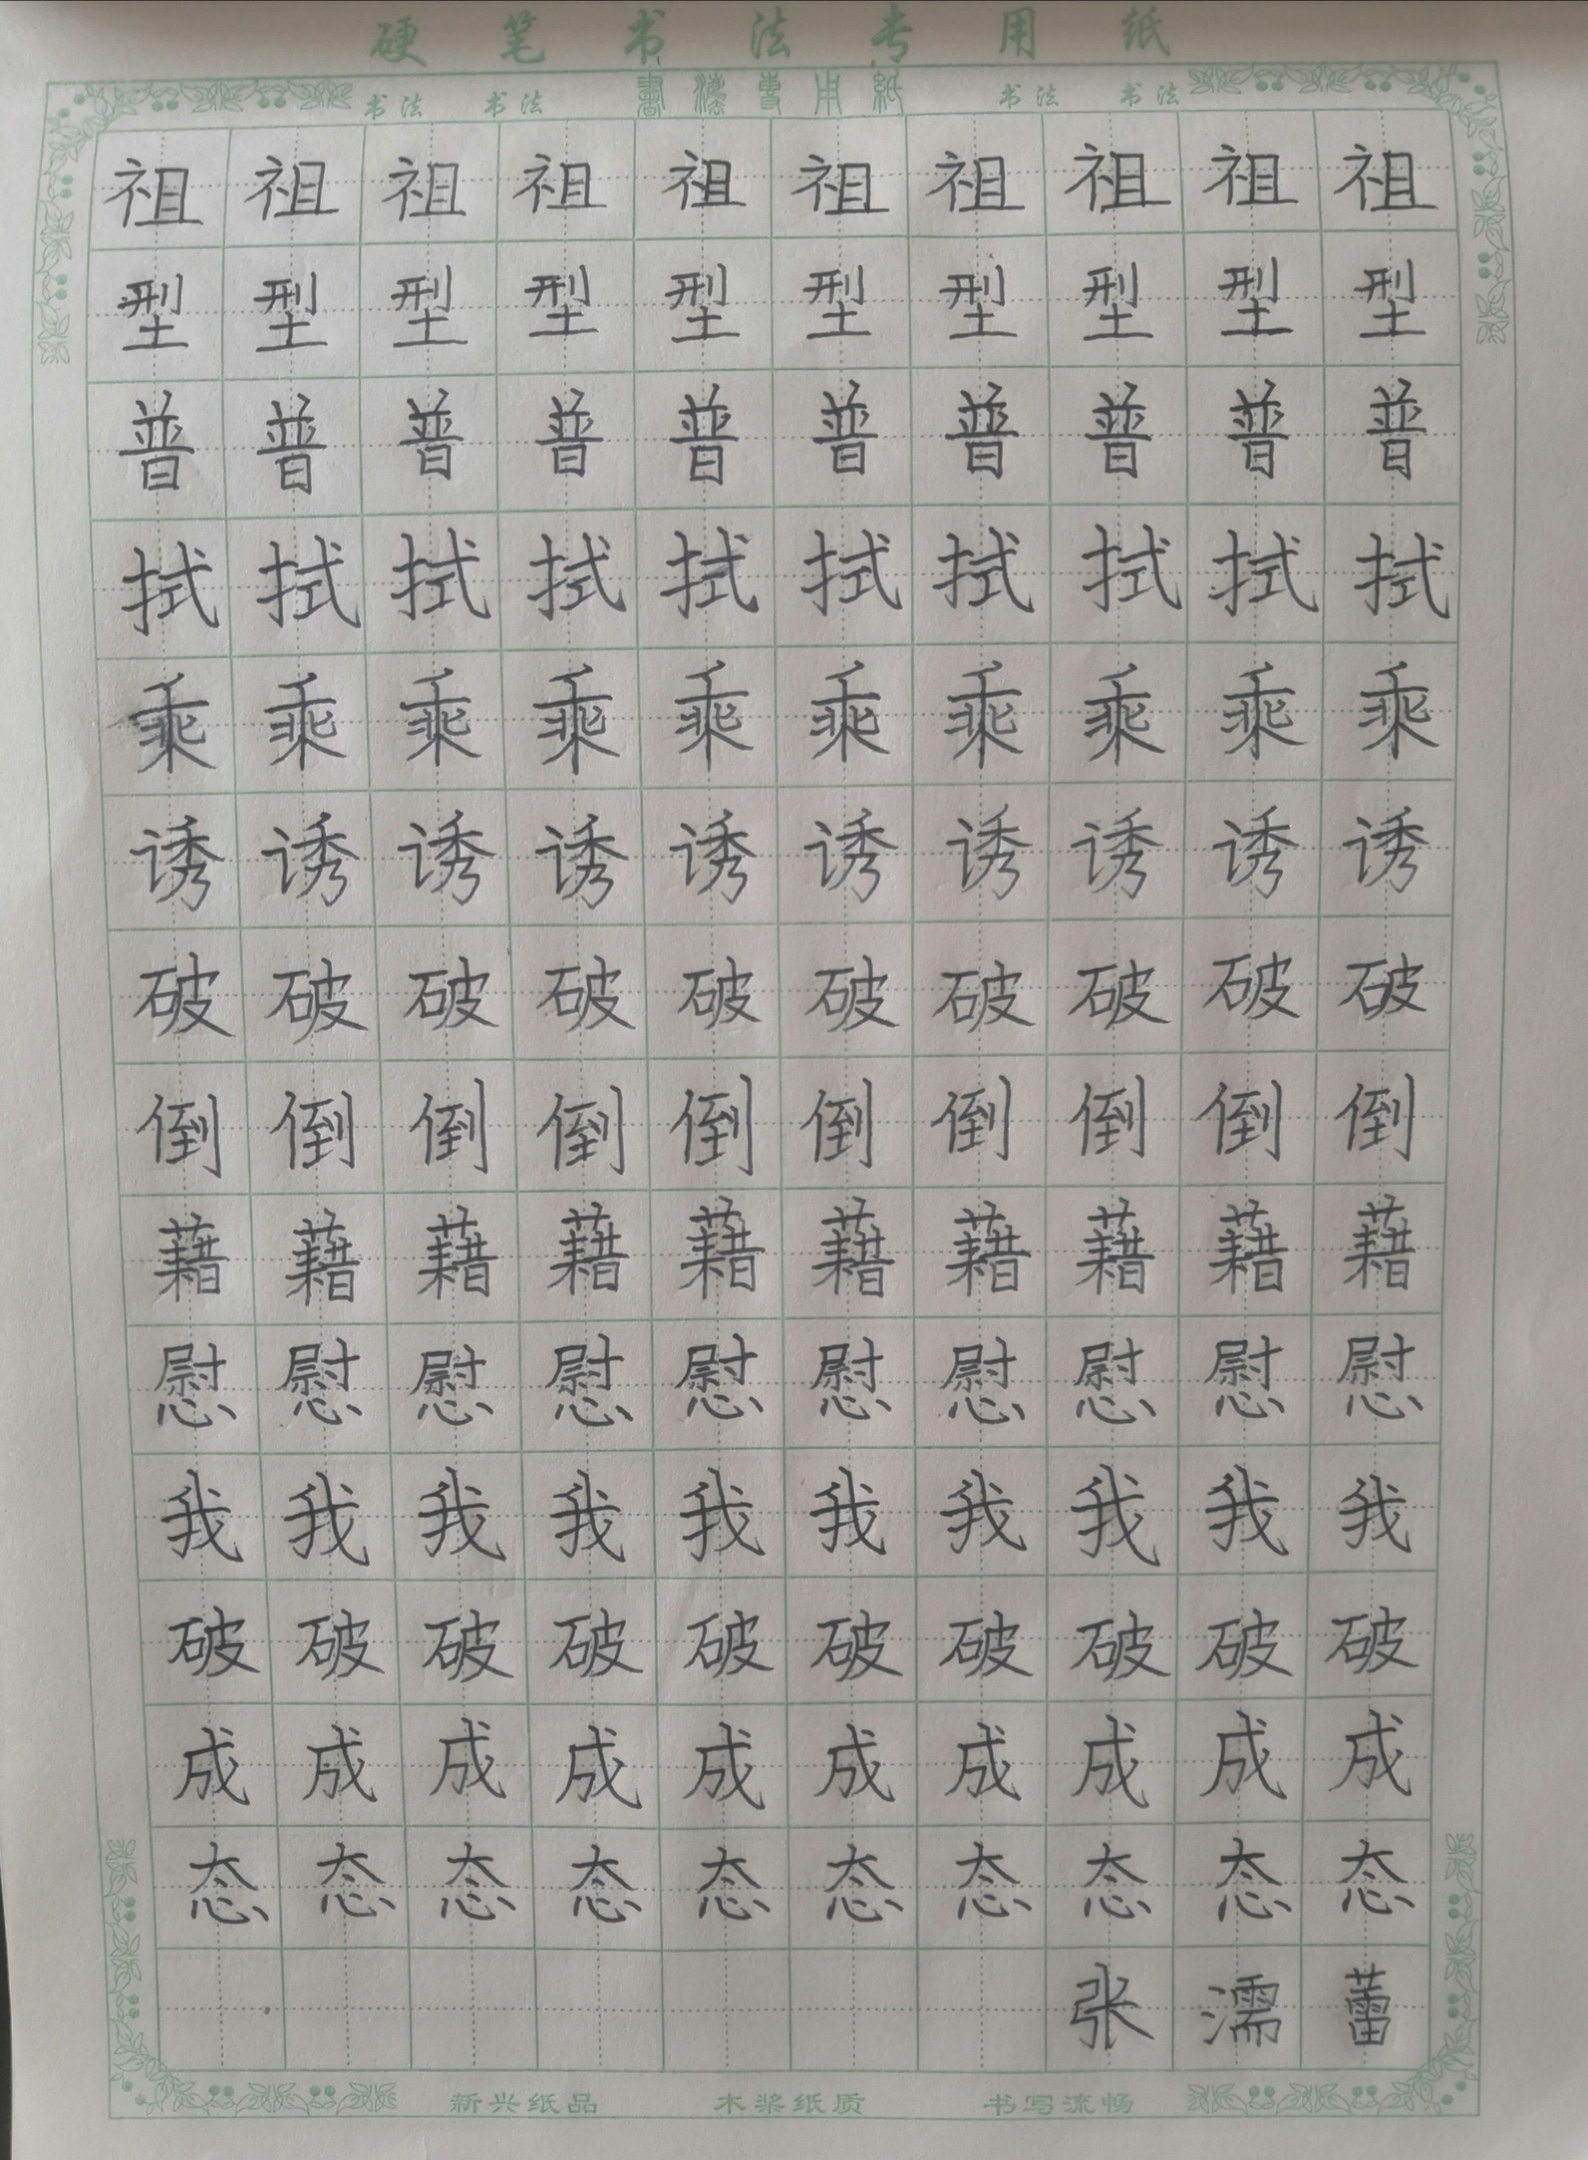 硬笔书法专用纸
书法 书法 書法專用紙 书法 书法
祖祖祖祖祖祖祖祖祖祖
型型型型型型型型型型
普普普普普普普普普普
拭拭拭拭拭拭拭拭拭拭
乘乘乘乘乘乘乘乘乘乘
诱诱诱诱诱诱诱诱诱诱
破破破破破破破破破破
倒倒倒倒倒倒倒倒倒倒
藉藉藉藉藉藉藉藉藉藉
慰慰慰慰慰慰慰慰慰慰
我我我我我我我我我我
破破破破破破破破破破
成成成成成成成成成成
态态态态态态态态态态
张濡蕾
新兴纸品 木浆纸质 书写流畅